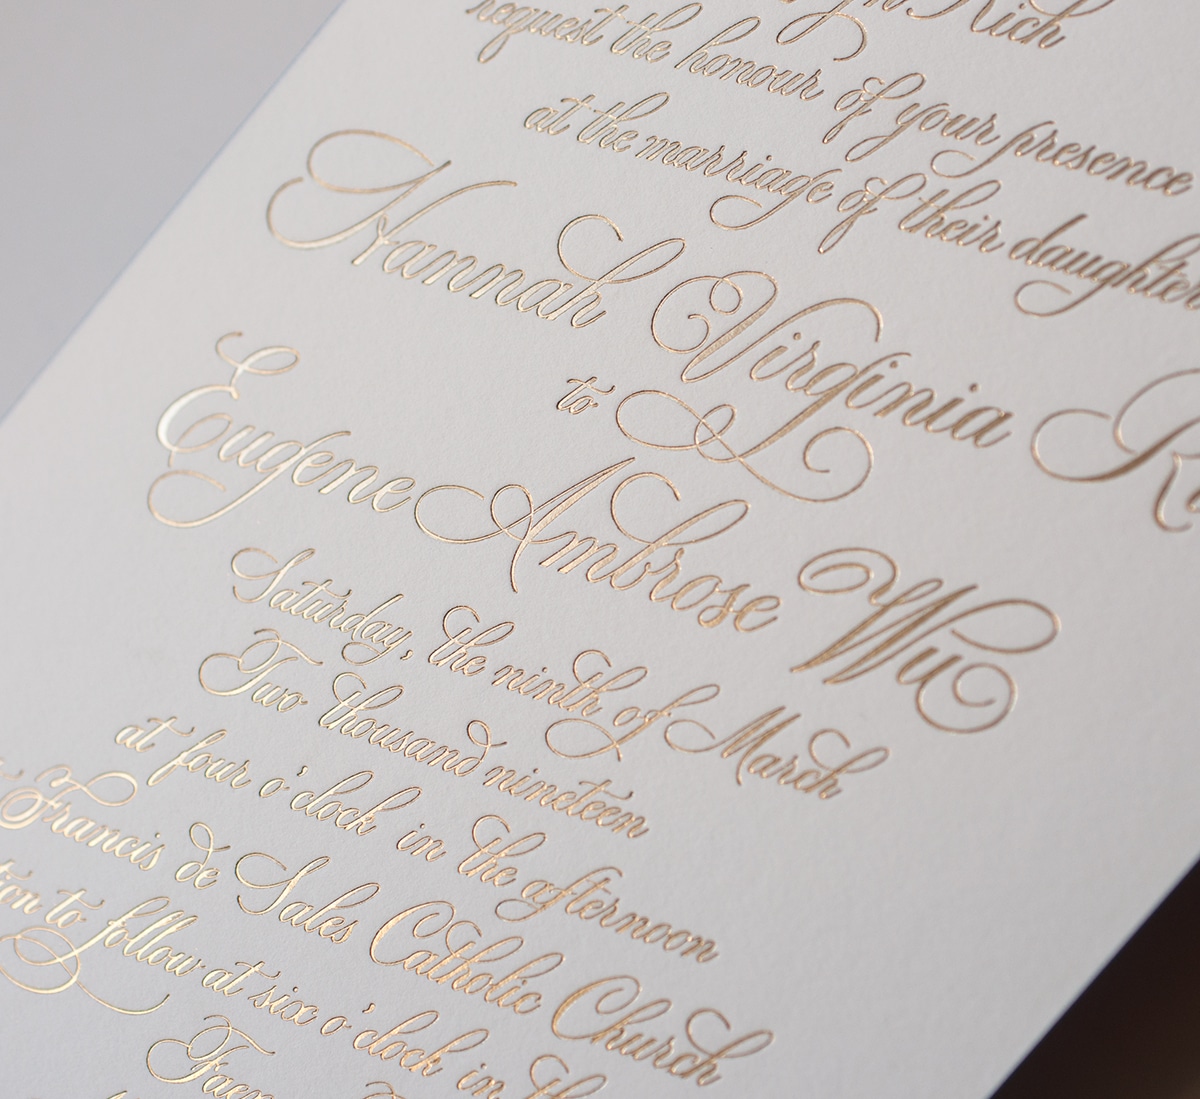 Rich
request the honour of your presence
at the marriage of their daughter
Hannah Virginia
to
Eugene Ambrose Wu
Saturday, the ninth of March
Two thousand nineteen
at four o'clock in the afternoon
Francis de Sales Catholic Church
to follow at six o'clock in